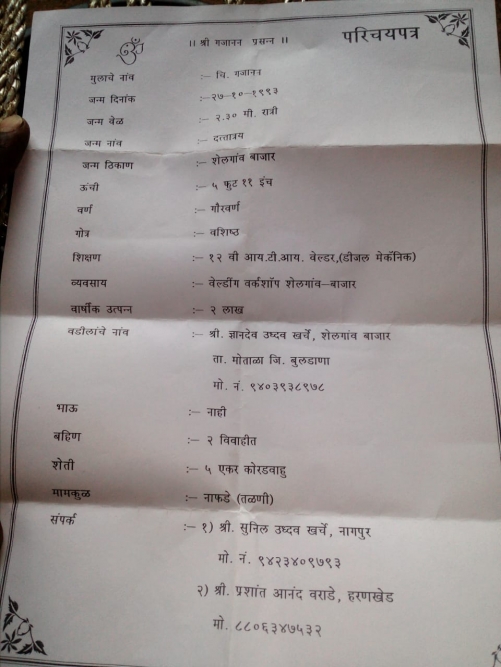 ॐ
।। श्री गजानन प्रसन्न ।। परिचयपत्र
मुलाचे नांव :– चि. गजानन
जन्म दिनांक :–२७–१०–१९९३
जन्म वेळ :– २.३० मी. रात्री
जन्म नांव :– दत्तात्रय
जन्म ठिकाण :– शेलगांव बाजार
ऊंची :– ५ फुट ११ इंच
वर्ण :– गौरवर्ण
गोत्र :– वशिष्ठ
शिक्षण :– १२ वी आय.टी.आय. वेल्डर,(डीजल मेकॅनिक)
व्यवसाय :– वेल्डींग वर्कशॉप शेलगांव–बाजार
वार्षीक उत्पन्न :– २ लाख
वडीलांचे नांव :– श्री. ज्ञानदेव उध्दव खर्चे, शेलगांव बाजार
ता. मोताळा जि. बुलडाणा
मो. नं. ९४०३९३८९७८
भाऊ :– नाही
बहिण :– २ विवाहीत
शेती :– ५ एकर कोरडवाहु
मामकुळ :– नाफडे (तळणी)
संपर्क :– १) श्री. सुनिल उध्दव खर्चे, नागपुर
मो. नं. ९४२३४०९७९३
२) श्री. प्रशांत आनंद वराडे, हरणखेड
मो. ८८०६३४७५३२